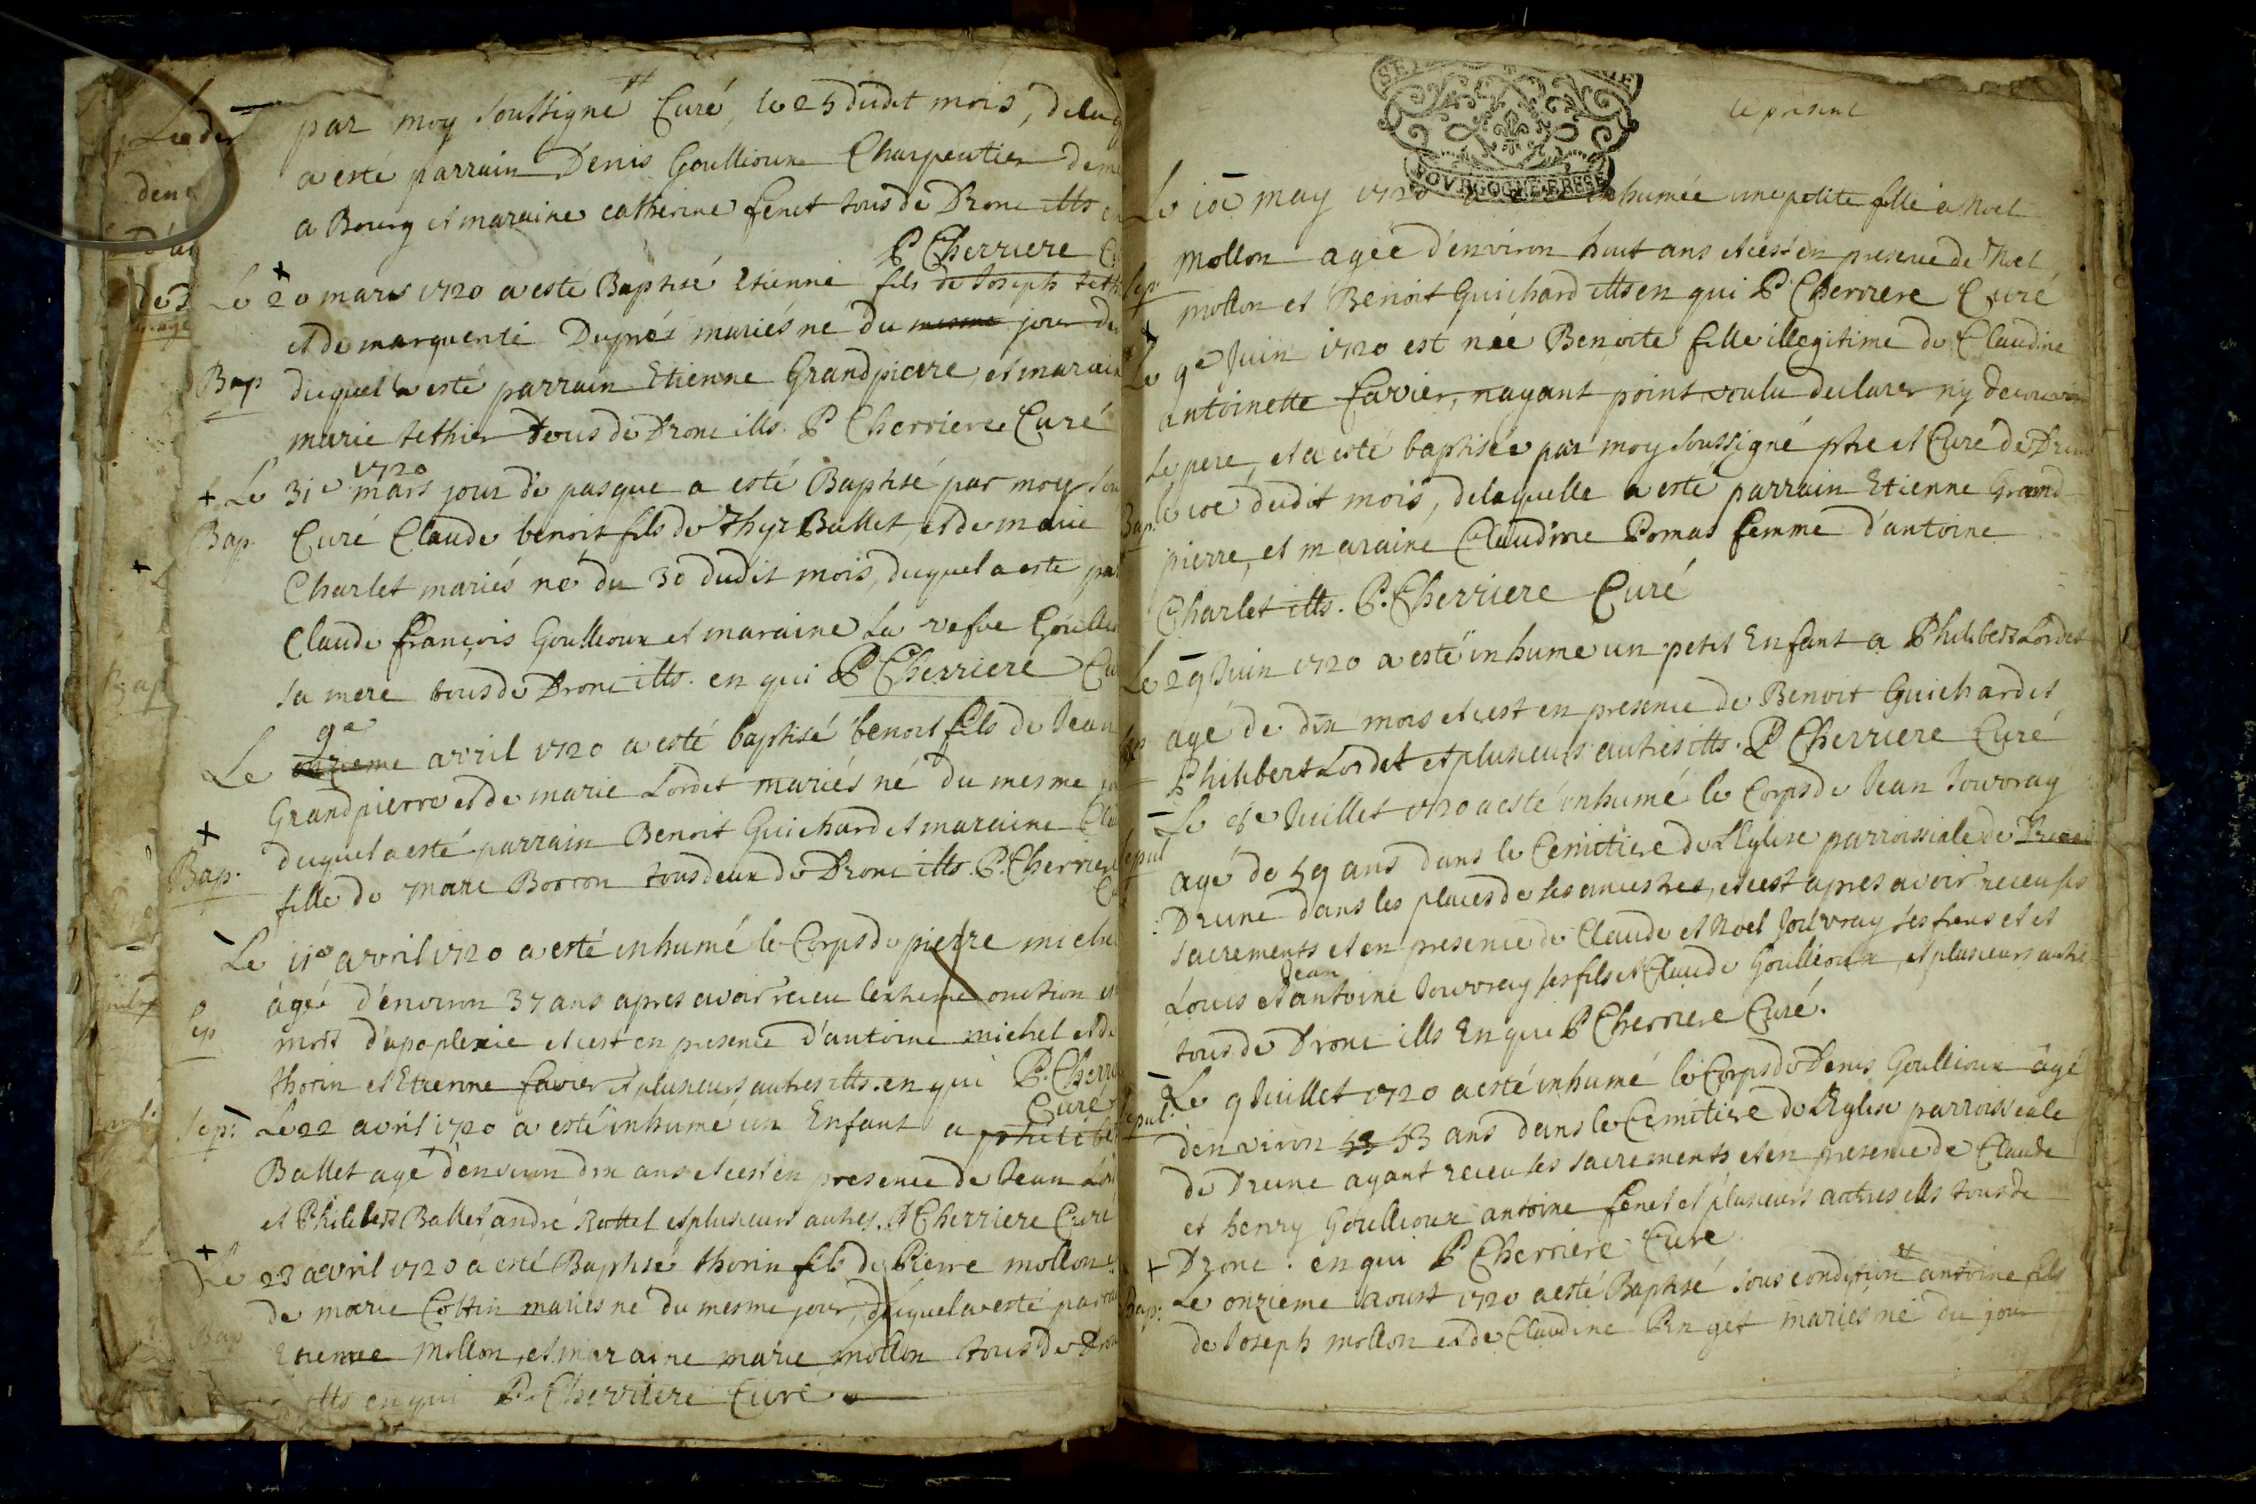 par moy soussigné Curé, le 25 dudit mois, delaq
a esté parrain Denis Goullioux Charpentier deme
a Bourg et maraine catherine fenet tous de Drom ills en
P Cherriere C
Le 20 mars 1720 a esté Baptisé Etienne fils de Joseph teth
et de marguerite Dupres mariés né du mesme jour du
Bap duquel a esté parrain Etienne Grandpierre, et marain
marie tethier tous de Drom ills. P Cherriere Curé
1720
Le 31e mars jour de pasque a esté Baptisé par moy sou
Bap. Curé Claude benoit fils de Thyr Ballet, et de marie
Charlet mariés né du 30 dudit mois, duquel a esté par
Claude françois Goullioux et maraine La vefve Goullio
sa mere tous de Drom ills. en qui P Cherriere Cu
9e
Le onzieme avril 1720 a esté baptisé benoit fils de Jean
Grandpierre et de marie Lordet mariés né du mesme jo
duquel a esté parrain Benoit Guichard et maraine Cla
Bap. fille de marc Borron tous deux de Drom ills. P. Cherriere
Cu
Le 11e avril 1720 a esté inhumé le Corps de pierre miche
âgé d'environ 37 ans apres avoir receu l'extreme onction et
Sep mort d'apoplexie et c'est en presence d'antoine michel et de
thorin et Etienne favier et plusieurs autres ills. en qui P. Cherri
Curé
Sep: Le 22 avril 1720 a esté inhumé un Enfant a philibe
Ballet agé d'environ dix ans et c'est en presence de Jean Lo
et Philibert Ballet andré Rottel et plusieurs autres. P Cherriere Curé
Le 23 avril 1720 a esté Baptisé thorin fils de Pierre mollon e
de marie Cottin mariés né du mesme jour, duquel a esté parrai
Bap Etienne Mollon, et maraine marie mollon tous de Dro
ills en qui P. Cherriere Curé
le present
BOURGOGNE BRESSE
Le 10e may 1720 a esté inhumée une petite fille a Noel
Mollon agée d'environ huit ans et c'est en presence de Noel
Sep mollon et Benoit Guichard ills en qui P. Cherriere Curé
Le 9e Juin 1720 est née Benoite fille illegitime de Claudine
antoinette favier, n'ayant point voulu declarer n'y decouvrir
Le pere, et a esté baptisée par moy soussigné ptre et Curé de Drom
Bap. le 10e dudit mois, delaquelle a esté parrain Etienne Grand
pierre, et maraine Claudine Pomas femme d'antoine
Charlet ills. P. Cherriere Curé
Le 29 Juin 1720 a esté inhumé un petit Enfant a Philibert Lordet
Sep agé de dix mois et c'est en presence de Benoit Guichard et
Philibert Lordet et plusieurs autres ills. P Cherriere Curé
Le 8e Juillet 1720 a esté inhumé le Corps de Jean Jouvray
Sepul agé de 59 ans dans le Cemitiere de L'Eglise parroissiale de
Drune dans les places de ses ancestres, et c'est apres avoir receu ses
sacrements et en presence de Claude et Noel Jouvray ses freres et et
Jean
Louis et antoine Jouvray ses fils et Claude Goullioux, et plusieurs autre
tous de Drom ills En qui P Cherriere Curé.
Le 9 Juillet 1720 a esté inhumé le Corps de Denis Goullioux âgé
Sepul. d'environ 53 53 ans dans le Cemitiere de L'Eglise parroissiale
de Drune ayant receu ses sacrements et en presence de Claude
et henry Goullioux antoine fenet et plusieurs autres ills tous de
Drom. en qui P Cherriere Curé
Bap: Le onzieme aoust 1720 a esté Baptisé sous condition antoine fils
de Joseph mollon et de Claudine Pinget mariés né du jour